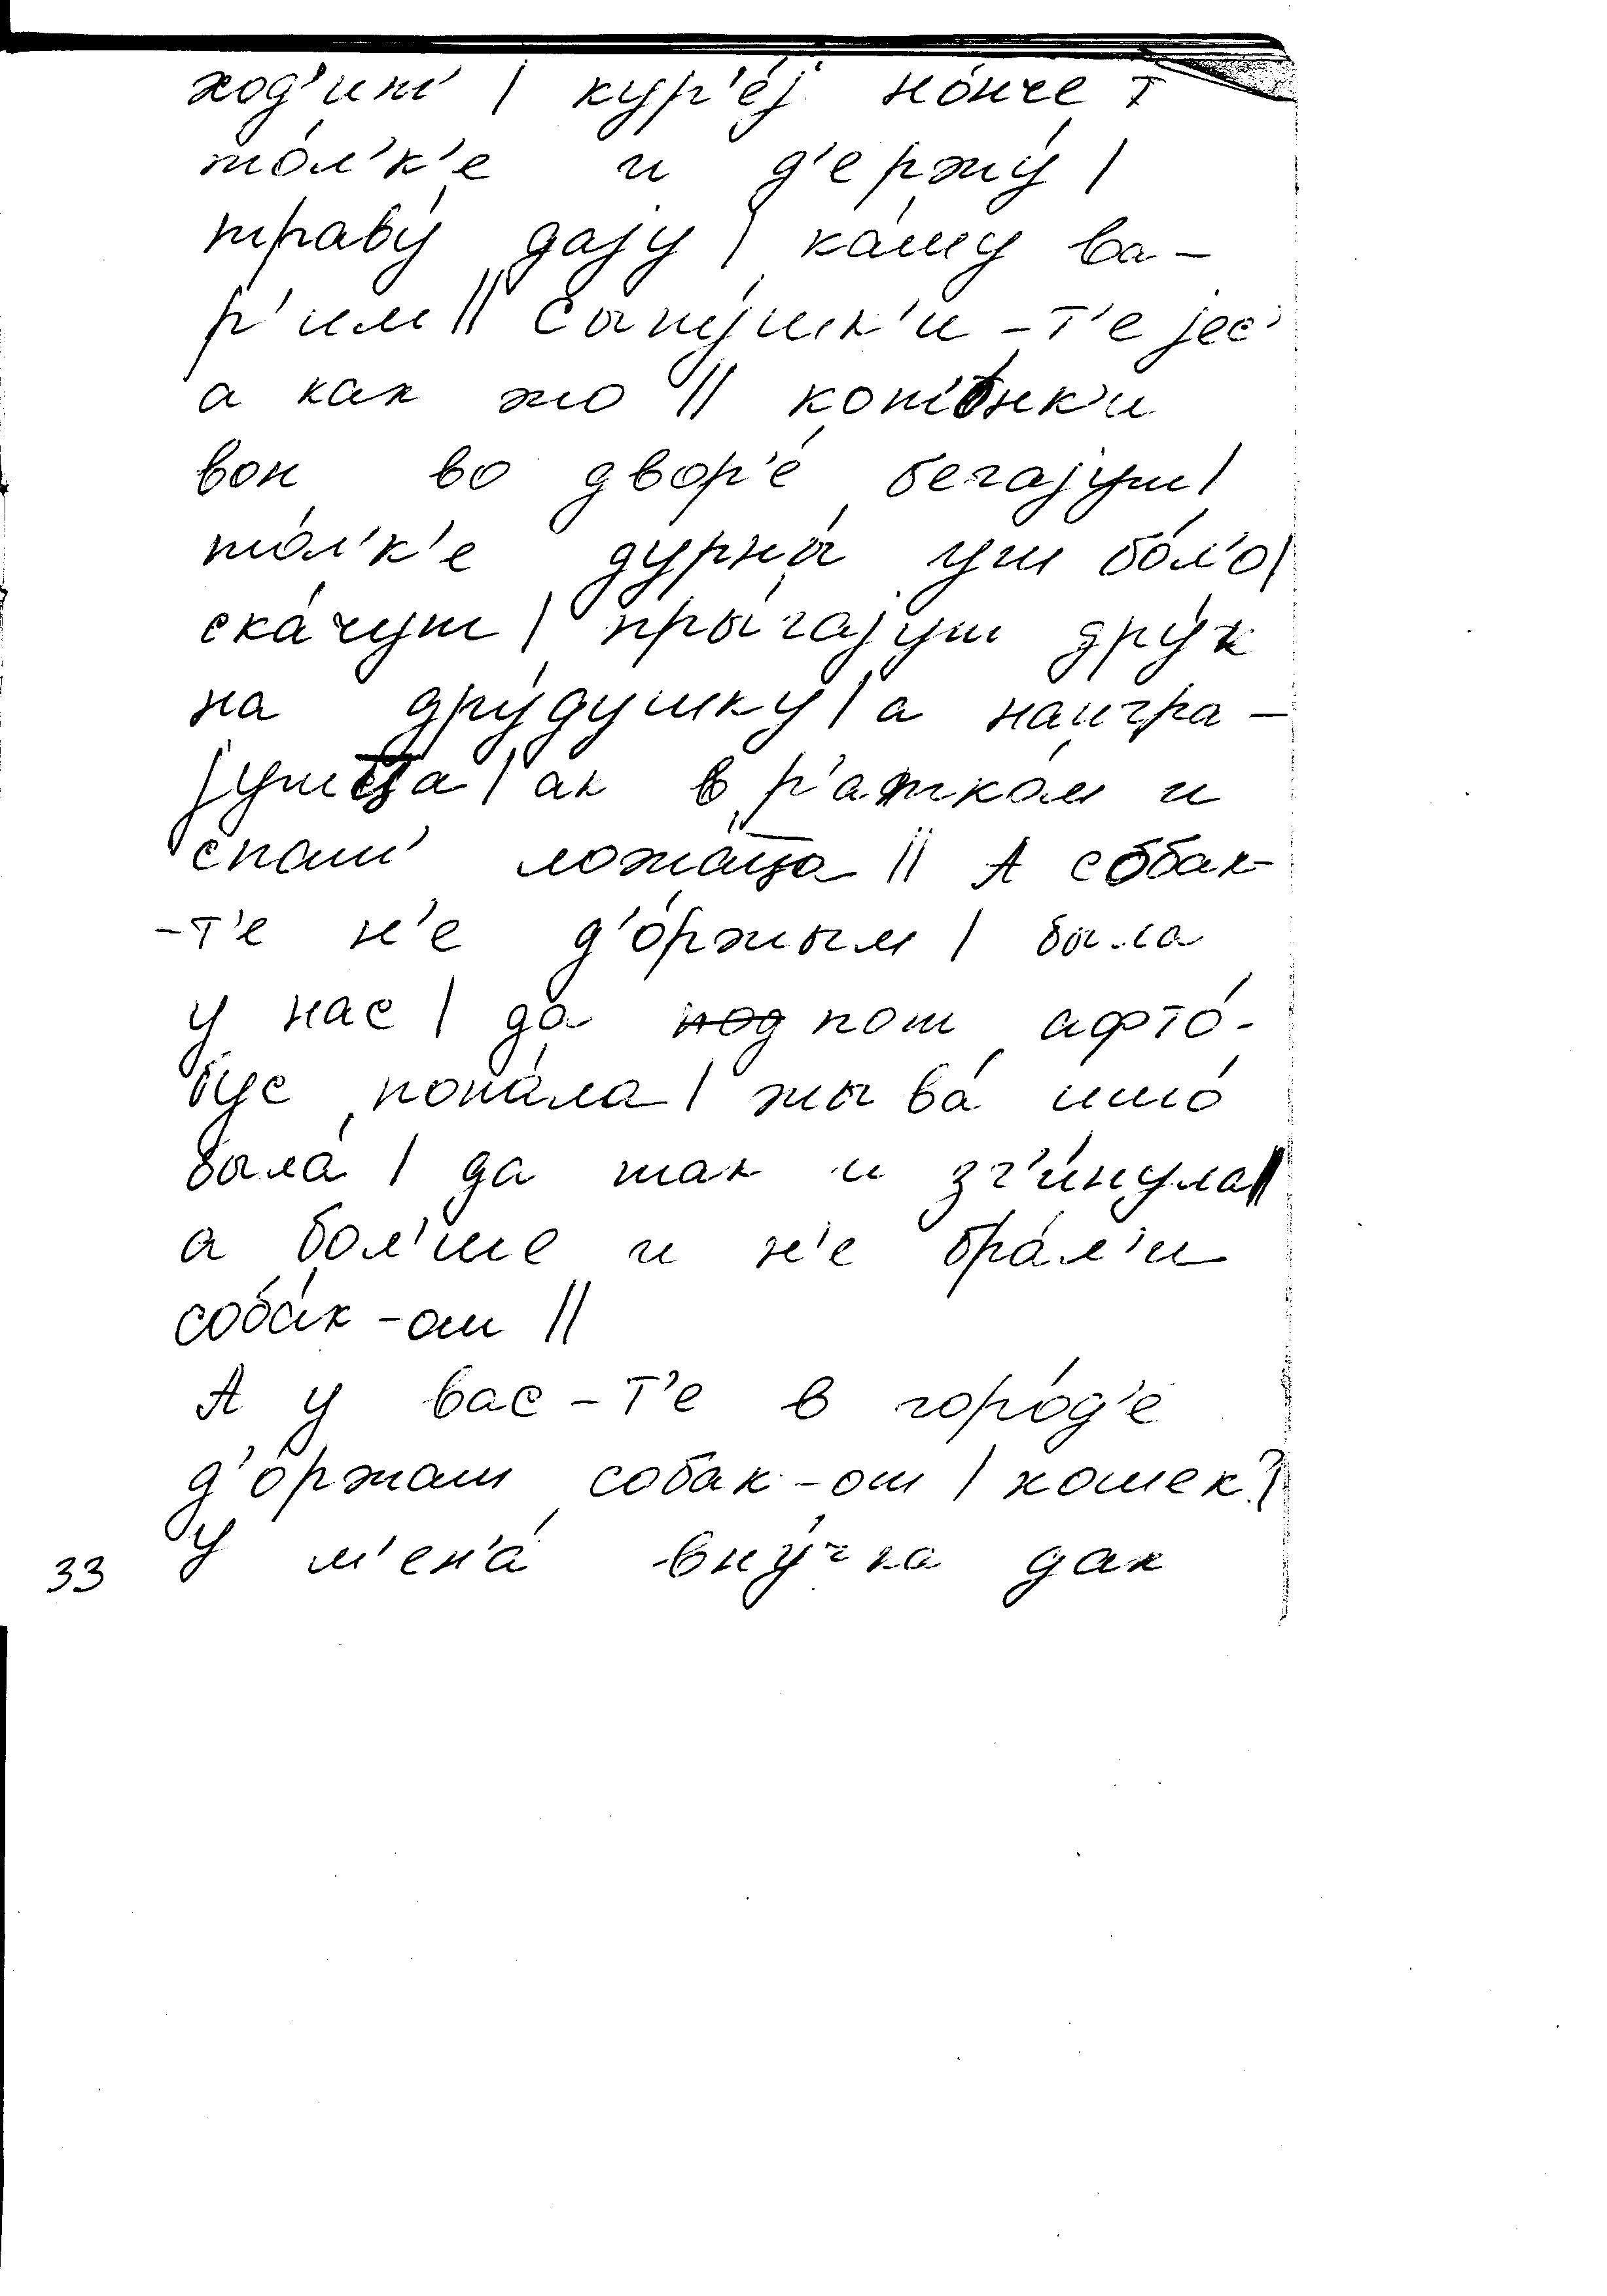 ход'ит' | кур'е́j но́нче т
то́л'к'е и д'ержу́ |
траву́ даjу́ | ка́шу ва-
р'и́м || Сыпу́шк'и -т'е jес'
а как жо || кот'о́нк'и
вон во двор'е́ бе́гаjут |
то́л'к'е дурны́ уш бо́л'о |
ска́чут | пры́гаjут дру́к
на дру́душку | а наигра-
jутца | ак в р'атко́м и
спат' ложа́цца || А собак-
-т'е н'е д'о́ржым | была
у нас | да под пот афто́-
бус попа́ла | жыва́ ишо́
была́ | да так и зг'и́нула ||
а бол'ше и н'е бра́л'и
соба́к -от ||
А у вас -т'е в горо́д'е
д'о́ржат собак -от | кошек? |
33 У м'ен'а́ вну́чка дак